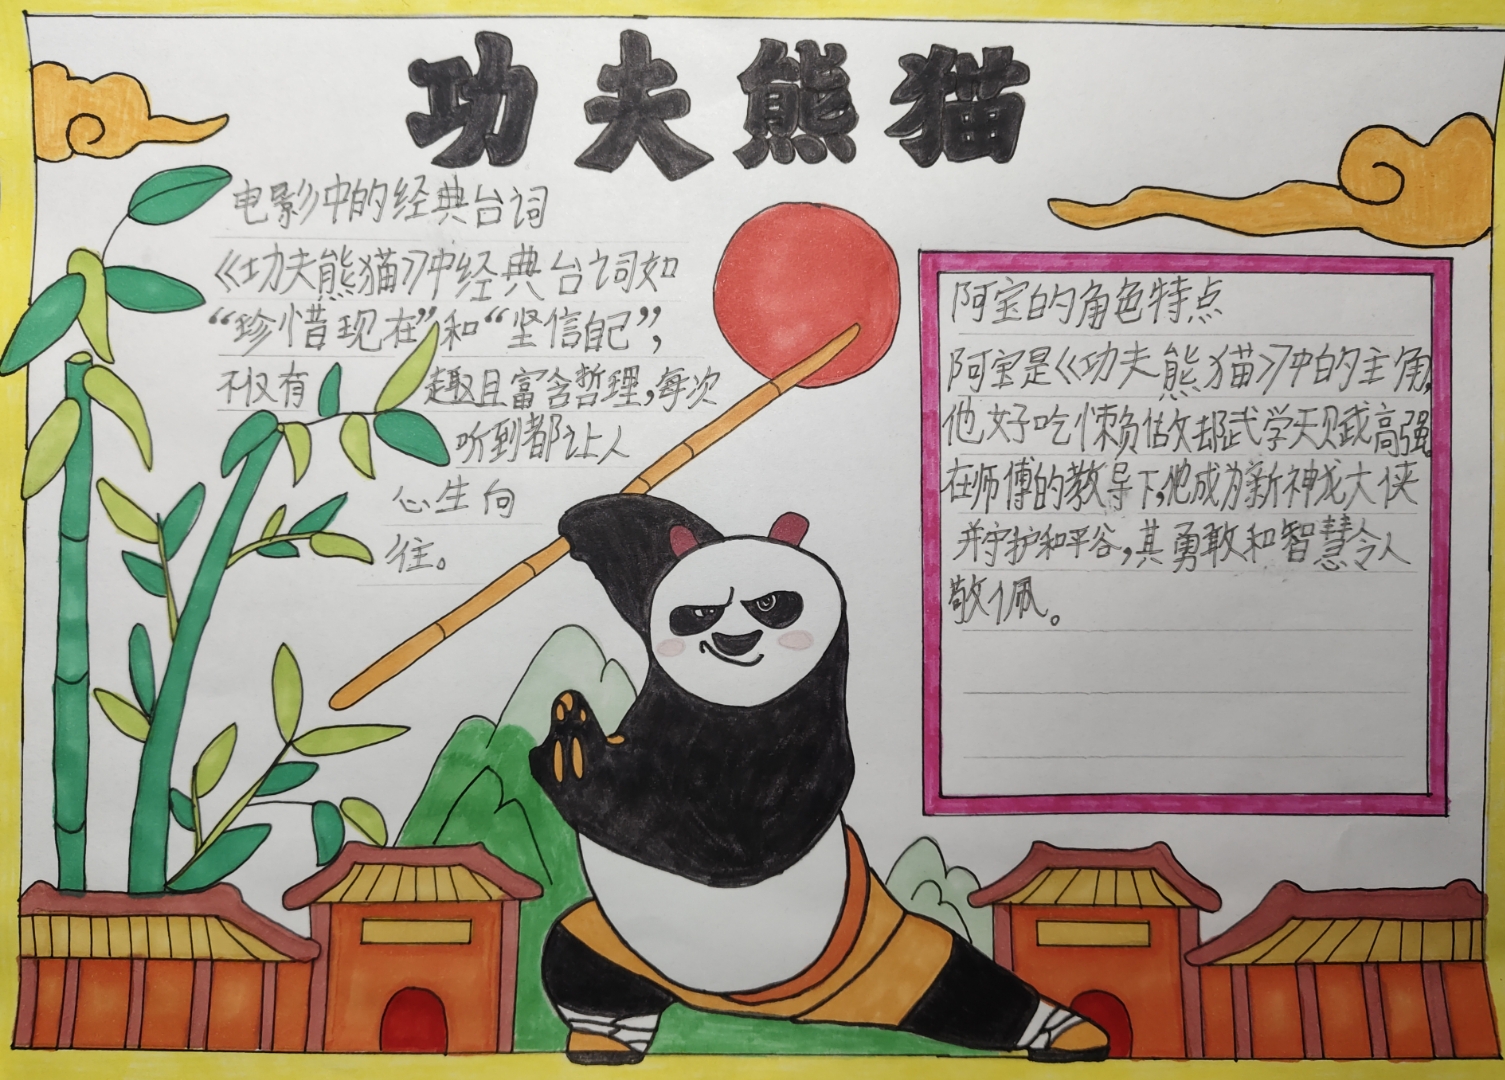 功夫熊猫
电影中的经典台词
《功夫熊猫》中经典台词如
“珍惜现在”和“坚信自己”,
不仅有趣且富含哲理,每次
听到都让人
心生向
往。
阿宝的角色特点
阿宝是《功夫熊猫》中的主角,
他好吃懒做却武学天赋高强。
在师傅的教导下,他成为新神龙大侠
并守护和平谷,其勇敢和智慧令人
敬佩。